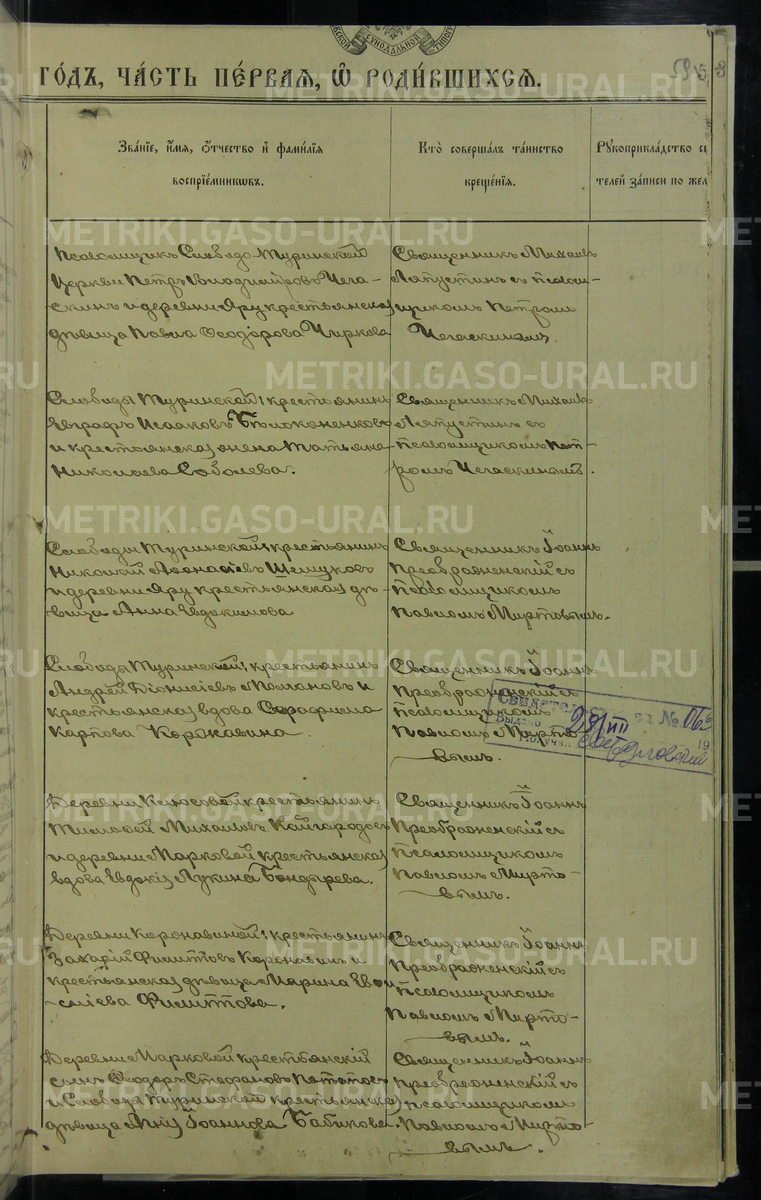 СУНОДАЛЬНОЙ
ГО́ДЪ, ЧА́СТЬ ПЕ́РВАЯ, Ѿ РОДИ́ВШИХСЯ.
Зва́нїе, и҆́мя, ѻ҆́тчество и҆ фами́лїя
воспрїе́мникѡвъ.
Кто̀ соверша́лъ та́инство
креще́нїя.
Рꙋкоприкла́дство
телей за́писи по жел
METRIKI.GASO-URAL.RU
Псаломщикъ Слободо-Туринской
Церкви Петръ Чега-
скинъ и деревни Яру крестьянская
дѣвица Павла Ѳеодорова Чиркова
Священникъ Михаилъ
Ляпустинъ съ псалом-
щикомъ Петромъ
Чегаскинымъ.
Слободы Туринской крестьянинъ
Евграфъ Исааковъ Бѣлоконенковъ
и крестьянская жена Татьяна
Николаева Соболева.
Священникъ Михаилъ
Ляпустинъ съ
псаломщикомъ Пет-
ромъ Чегаскинымъ.
Слободы Туринской крестьянинъ
Николай Аѳанасіевъ
и деревни Яру крестьянская дѣ-
вица Анна Евдокимова
Священникъ Іоаннъ
Преображенскій съ
псаломщикомъ
Павломъ Миртовымъ.
Слободы Туринской крестьянинъ
Андрей Діонисіевъ и
крестьянская вдова Серафима
Карпова Коржавина.
Священникъ Іоаннъ
Преображенскій съ
псаломщикомъ
Павломъ Мирто-
вымъ.
Деревни крестьянинъ
Тимоѳей Михаиловъ Кайгородовъ
и деревни Марковой крестьянская
вдова Евдокія Лукина Бондырева.
Священникъ Іоаннъ
Преображенскій съ
псаломщикомъ
Павломъ Мирто-
вымъ.
Деревни Коржавиной крестьянинъ
Захарій Филипповъ Коржавинъ и
крестьянская дѣвица Марина
Филиппова.
Священникъ Іоаннъ
Преображенскій съ
псаломщикомъ
Павломъ Мирто-
вымъ.
Деревни Марковой крестьянскій
сынъ Ѳеодоръ Стефановъ
и Слободы Туринской крестьянская
дѣвица Іоаннова Бабикова.
Священникъ Іоаннъ
Преображенскій съ
псаломщикомъ
Павломъ Мирто-
вымъ.